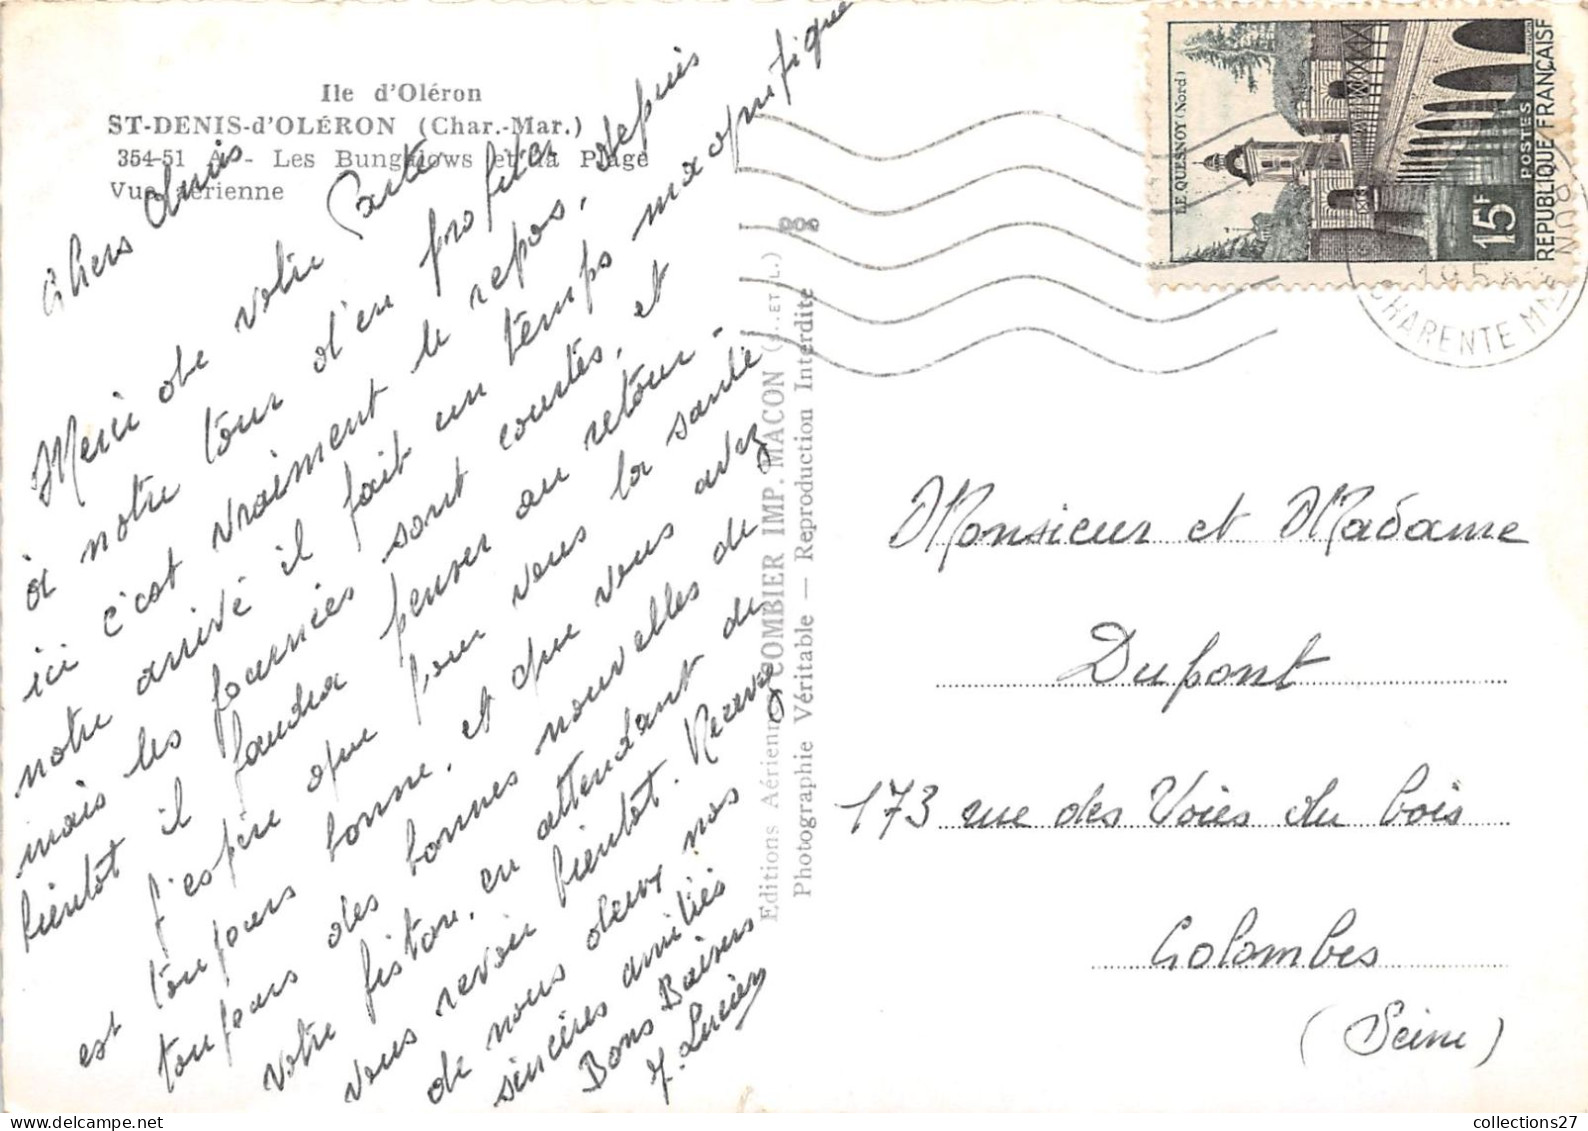 Ile d'Oléron
ST-DENIS-d'OLÉRON (Char.-Mar.)
354-51 A - Les Bungalows et la Plage
Vue aérienne
Chers Amis
Merci de votre Carte
à notre tour d'en profiter
ici c'est vraiment le repos, depuis
notre arrivé il fait un temps magnifique
mais les journées sont courtes, et
bientôt il faudra penser au retour -
J'espère que pour vous la santé
est toujours bonne, et que vous avez
toujours des bonnes nouvelles de
votre fiston, en attendant de
vous revoir bientôt. Recevez
de nous deux nos
sincères amitiés
Bons Baisers
Y. Lucien
Editions Aériennes COMBIER IMP. MACON (S.-ET-L.)
Photographie Véritable — Reproduction Interdite
LE QUESNOY (Nord)
15F
POSTES
REPUBLIQUE FRANÇAISE
1958
CHARENTE
Monsieur et Madame
Dupont
173 rue des Voies du bois
Colombes
(Seine)
collections27